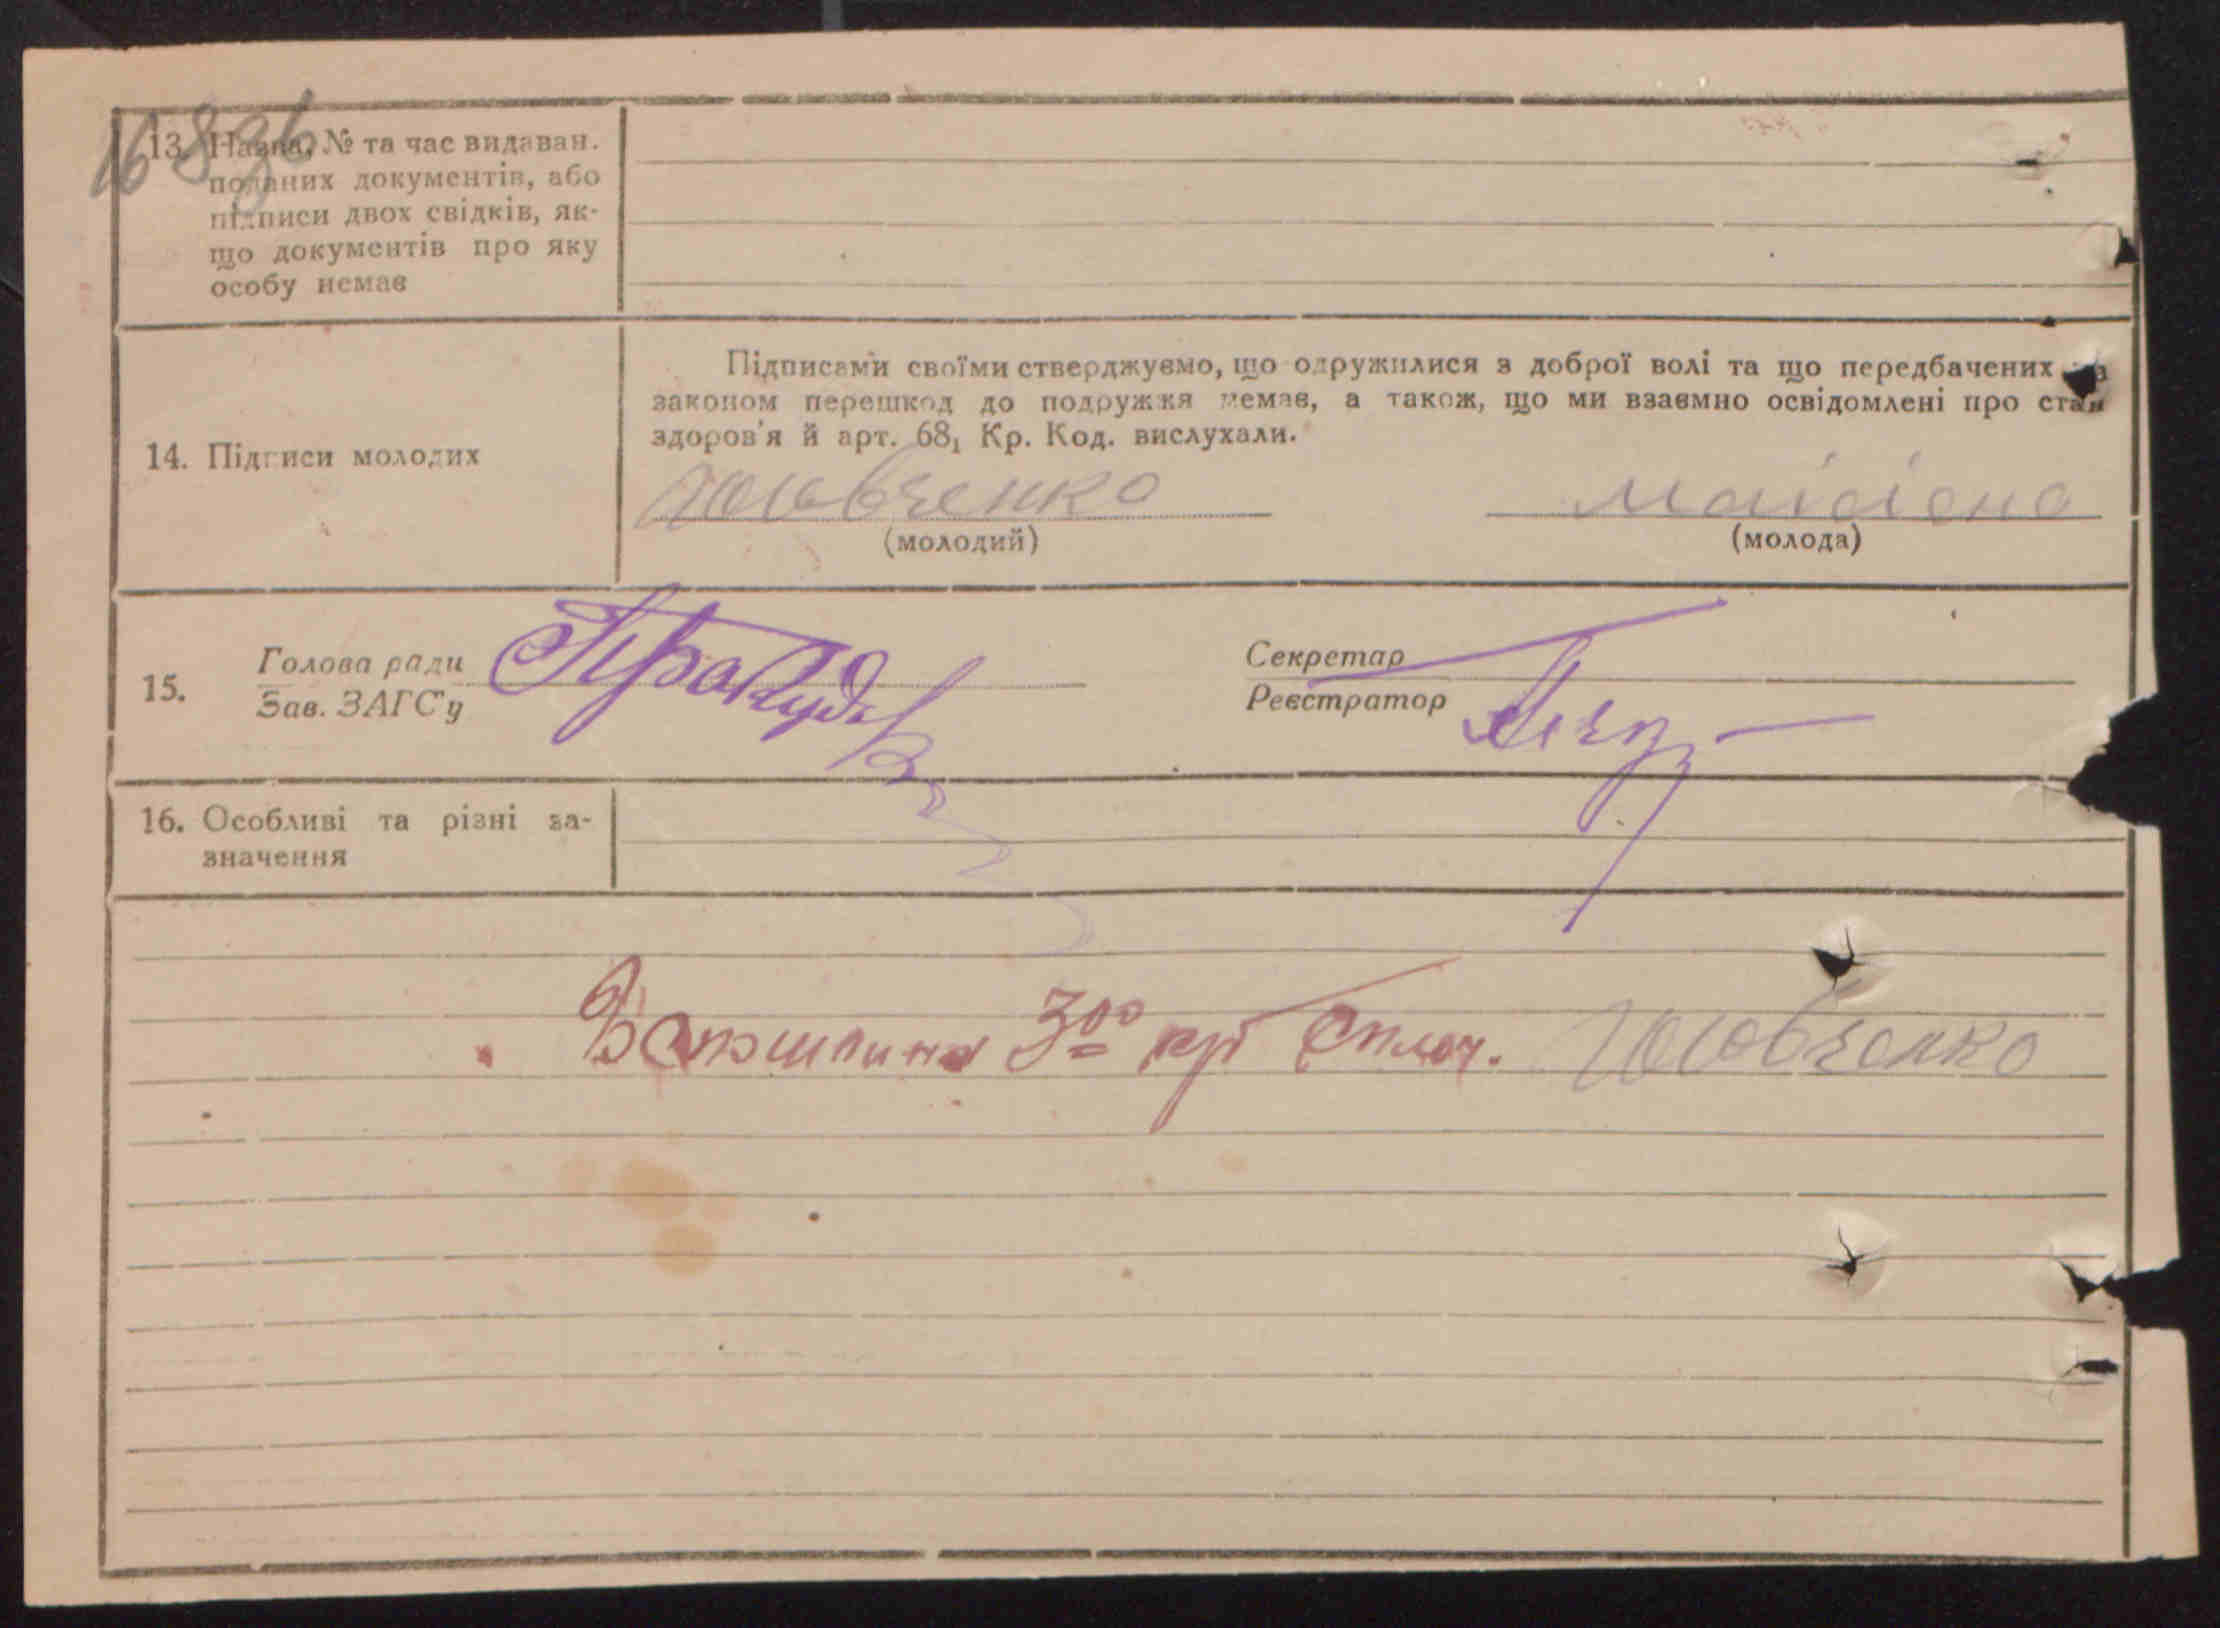 13. Назва, № та час видаван.
поданих документів, або
підписи двох свідків, як-
що документів про яку
особу немає
Підписами своїми стверджуємо, що одружилися з доброї волі та що передбачених за
законом перешкод до подружжя немає, а також, що ми взаємно освідомлені про стан
здоров'я й арт. 68₁ Кр. Код. вислухали.
14. Підписи молодих
(молодий) (молода)
15. Голова ради
Зав. ЗАГС'у
Секретар
Реєстратор
16. Особливі та різні за-
значення
3⁰⁰